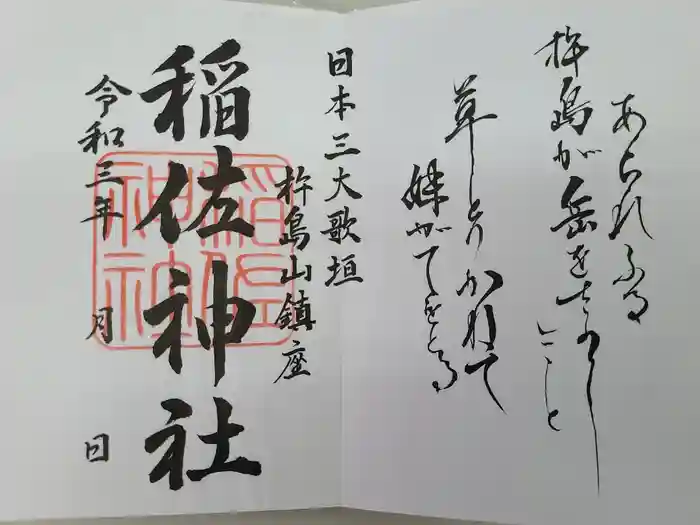 あられふる
杵島が岳をさかし
みと
草とりかねて
妹がてをとる
日本三大歌垣
杵島山鎮座
稲佐神社
令和三年 月 日
稲佐
神社